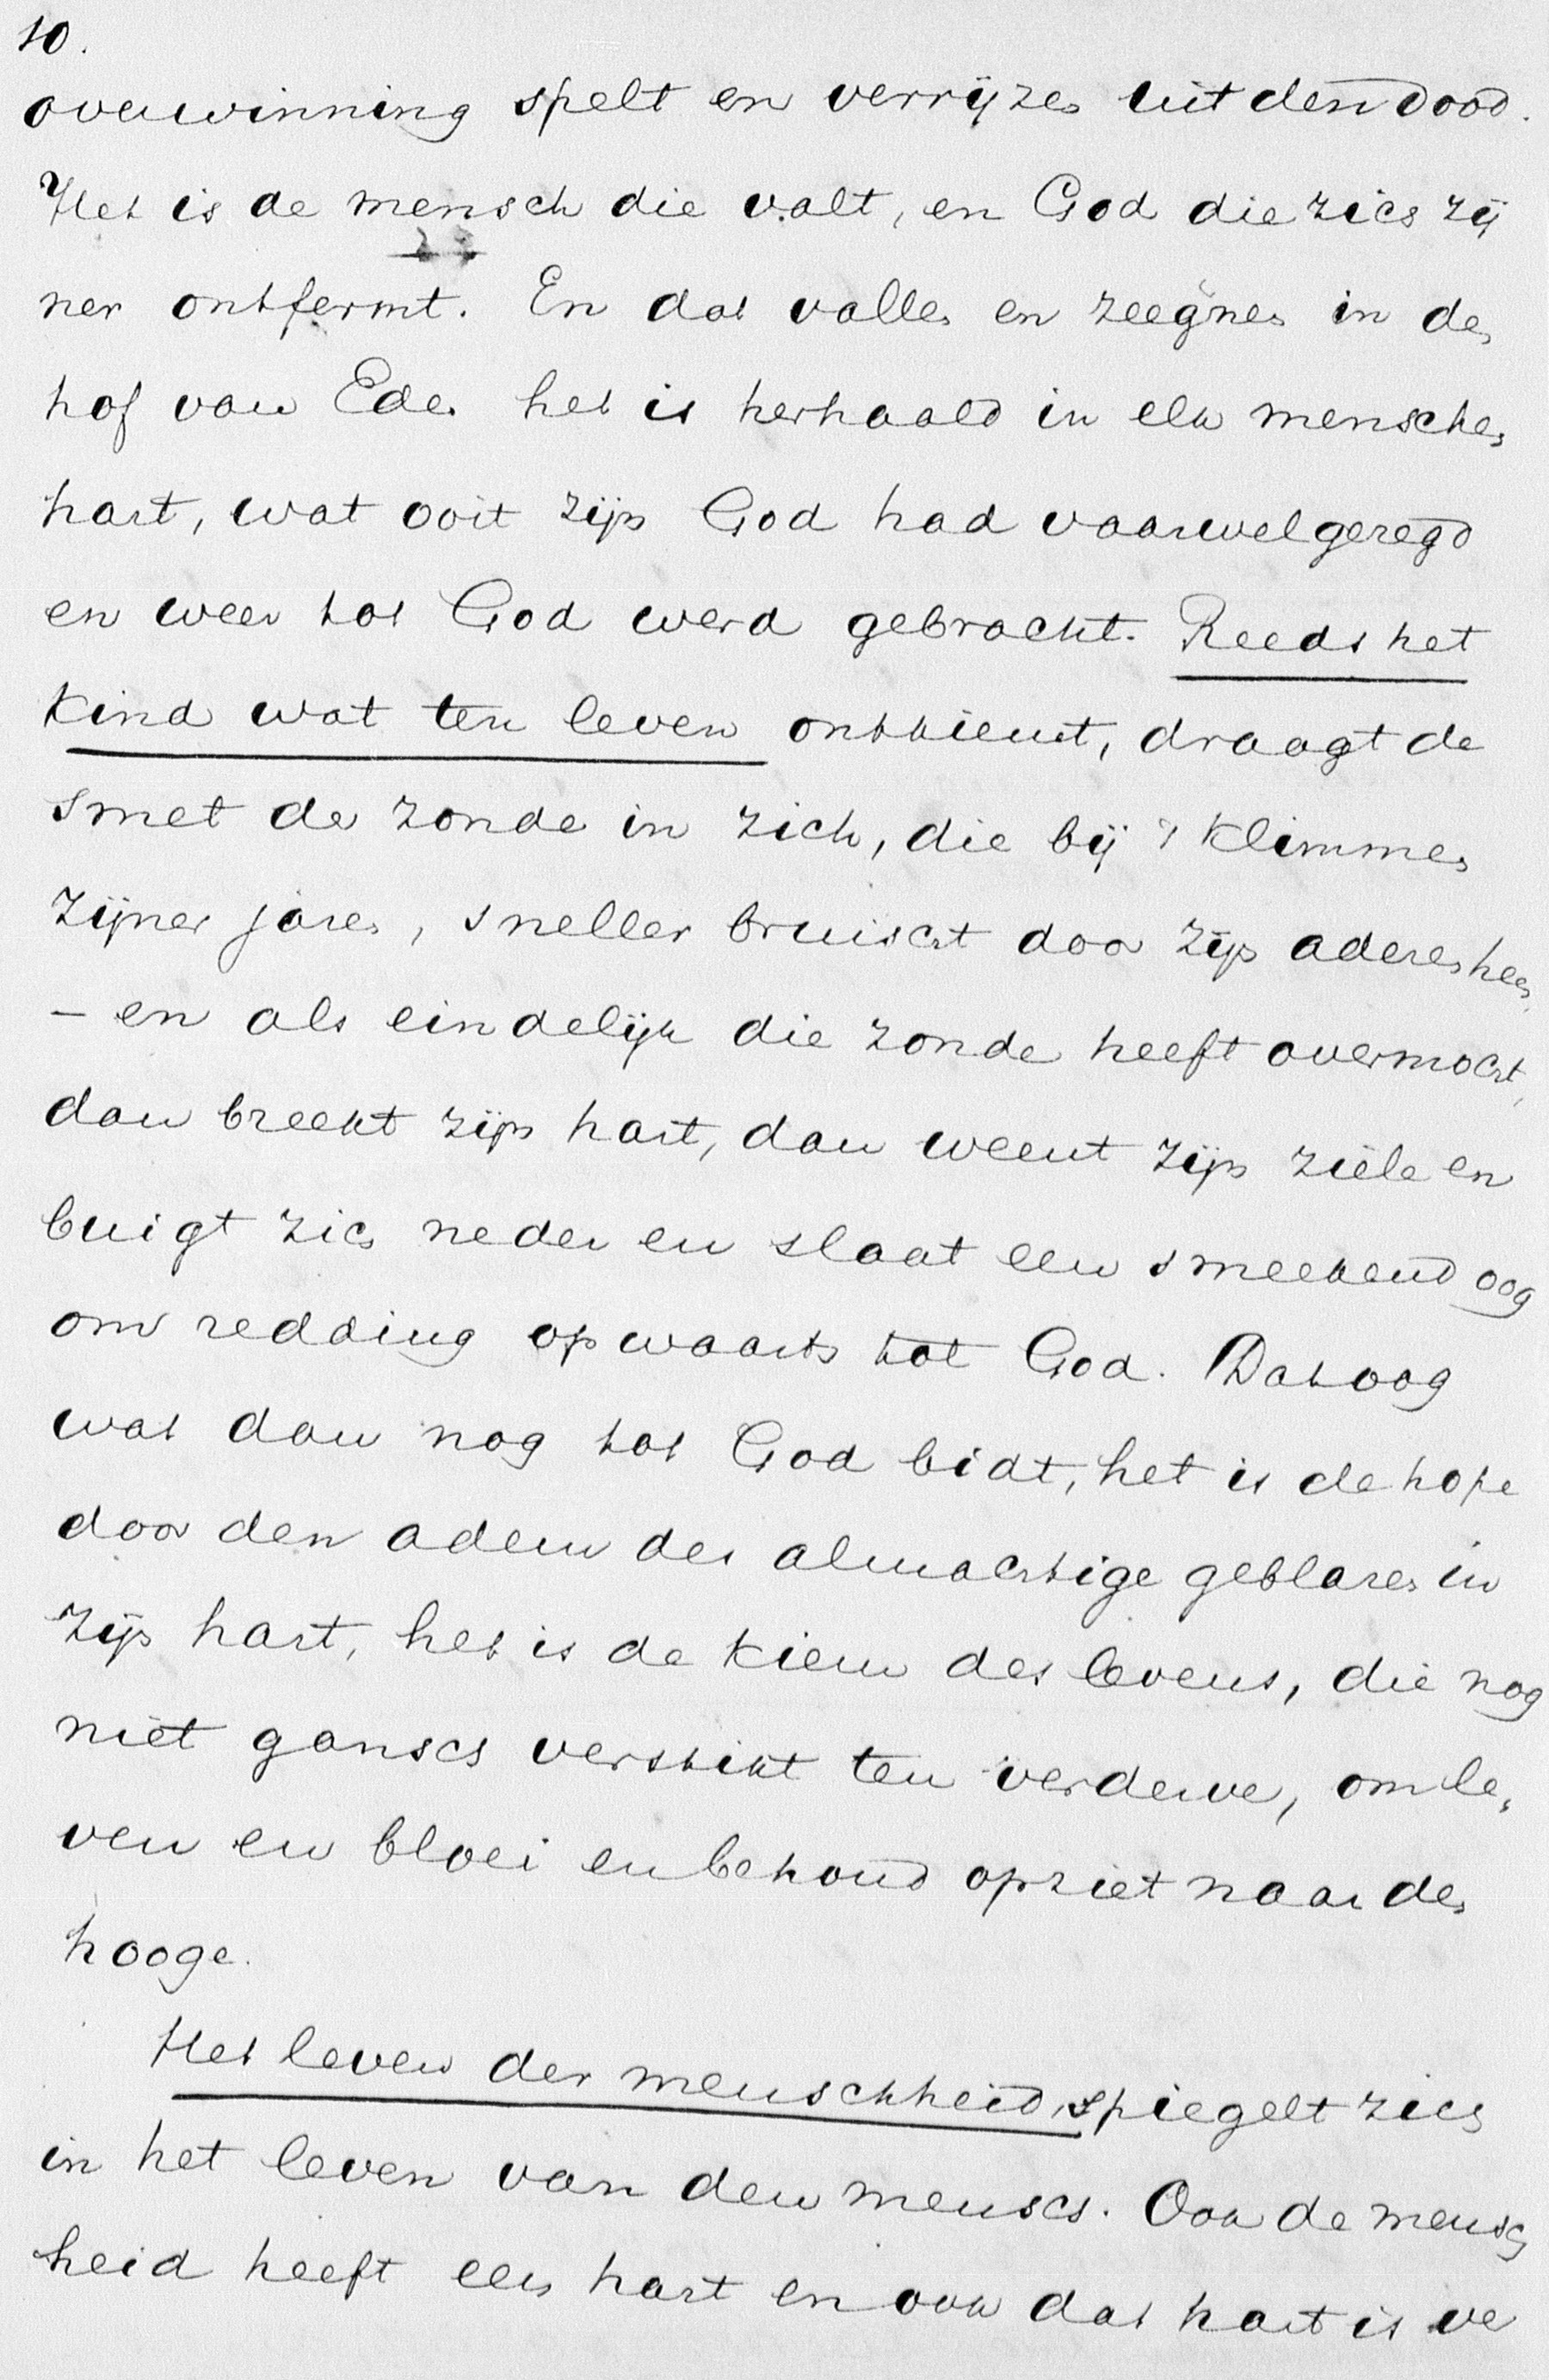 10.
overwinning spelt en verrijzen uit den dood.
Het is de mensch die valt, en God die zich zij
ner ontfermt. En dat vallen en zeegnen in den
hof van Eden het is herhaald in elk menschen
hart, wat ooit zijn God had vaarwel gezegd
en weer tot God werd gebracht. Reeds het
kind wat ten leven ontkiemt, draagt de
smet der zonde in zich, die bij 't klimmen
zijner jaren, sneller bruischt door zijn aderen heen,
- en als eindelijk die zonde heeft overmocht,
dan breekt zijn hart, dan weent zijn ziele en
buigt zich neder en slaat een smeekend oog
om redding opwaarts tot God. Dat oog
wat dan nog tot God bidt, het is de hope
door den adem des almachtige geblazen in
zijn hart, het is de kiem des levens, die nog
niet gansch verstikt ten verderve, om le,
ven en bloei en behoud opziet naar den
hooge.
Het leven der menschheid, spiegelt zich
in het leven van den mensch. Ook de mensch
heid heeft een hart en ook dat hart is ve